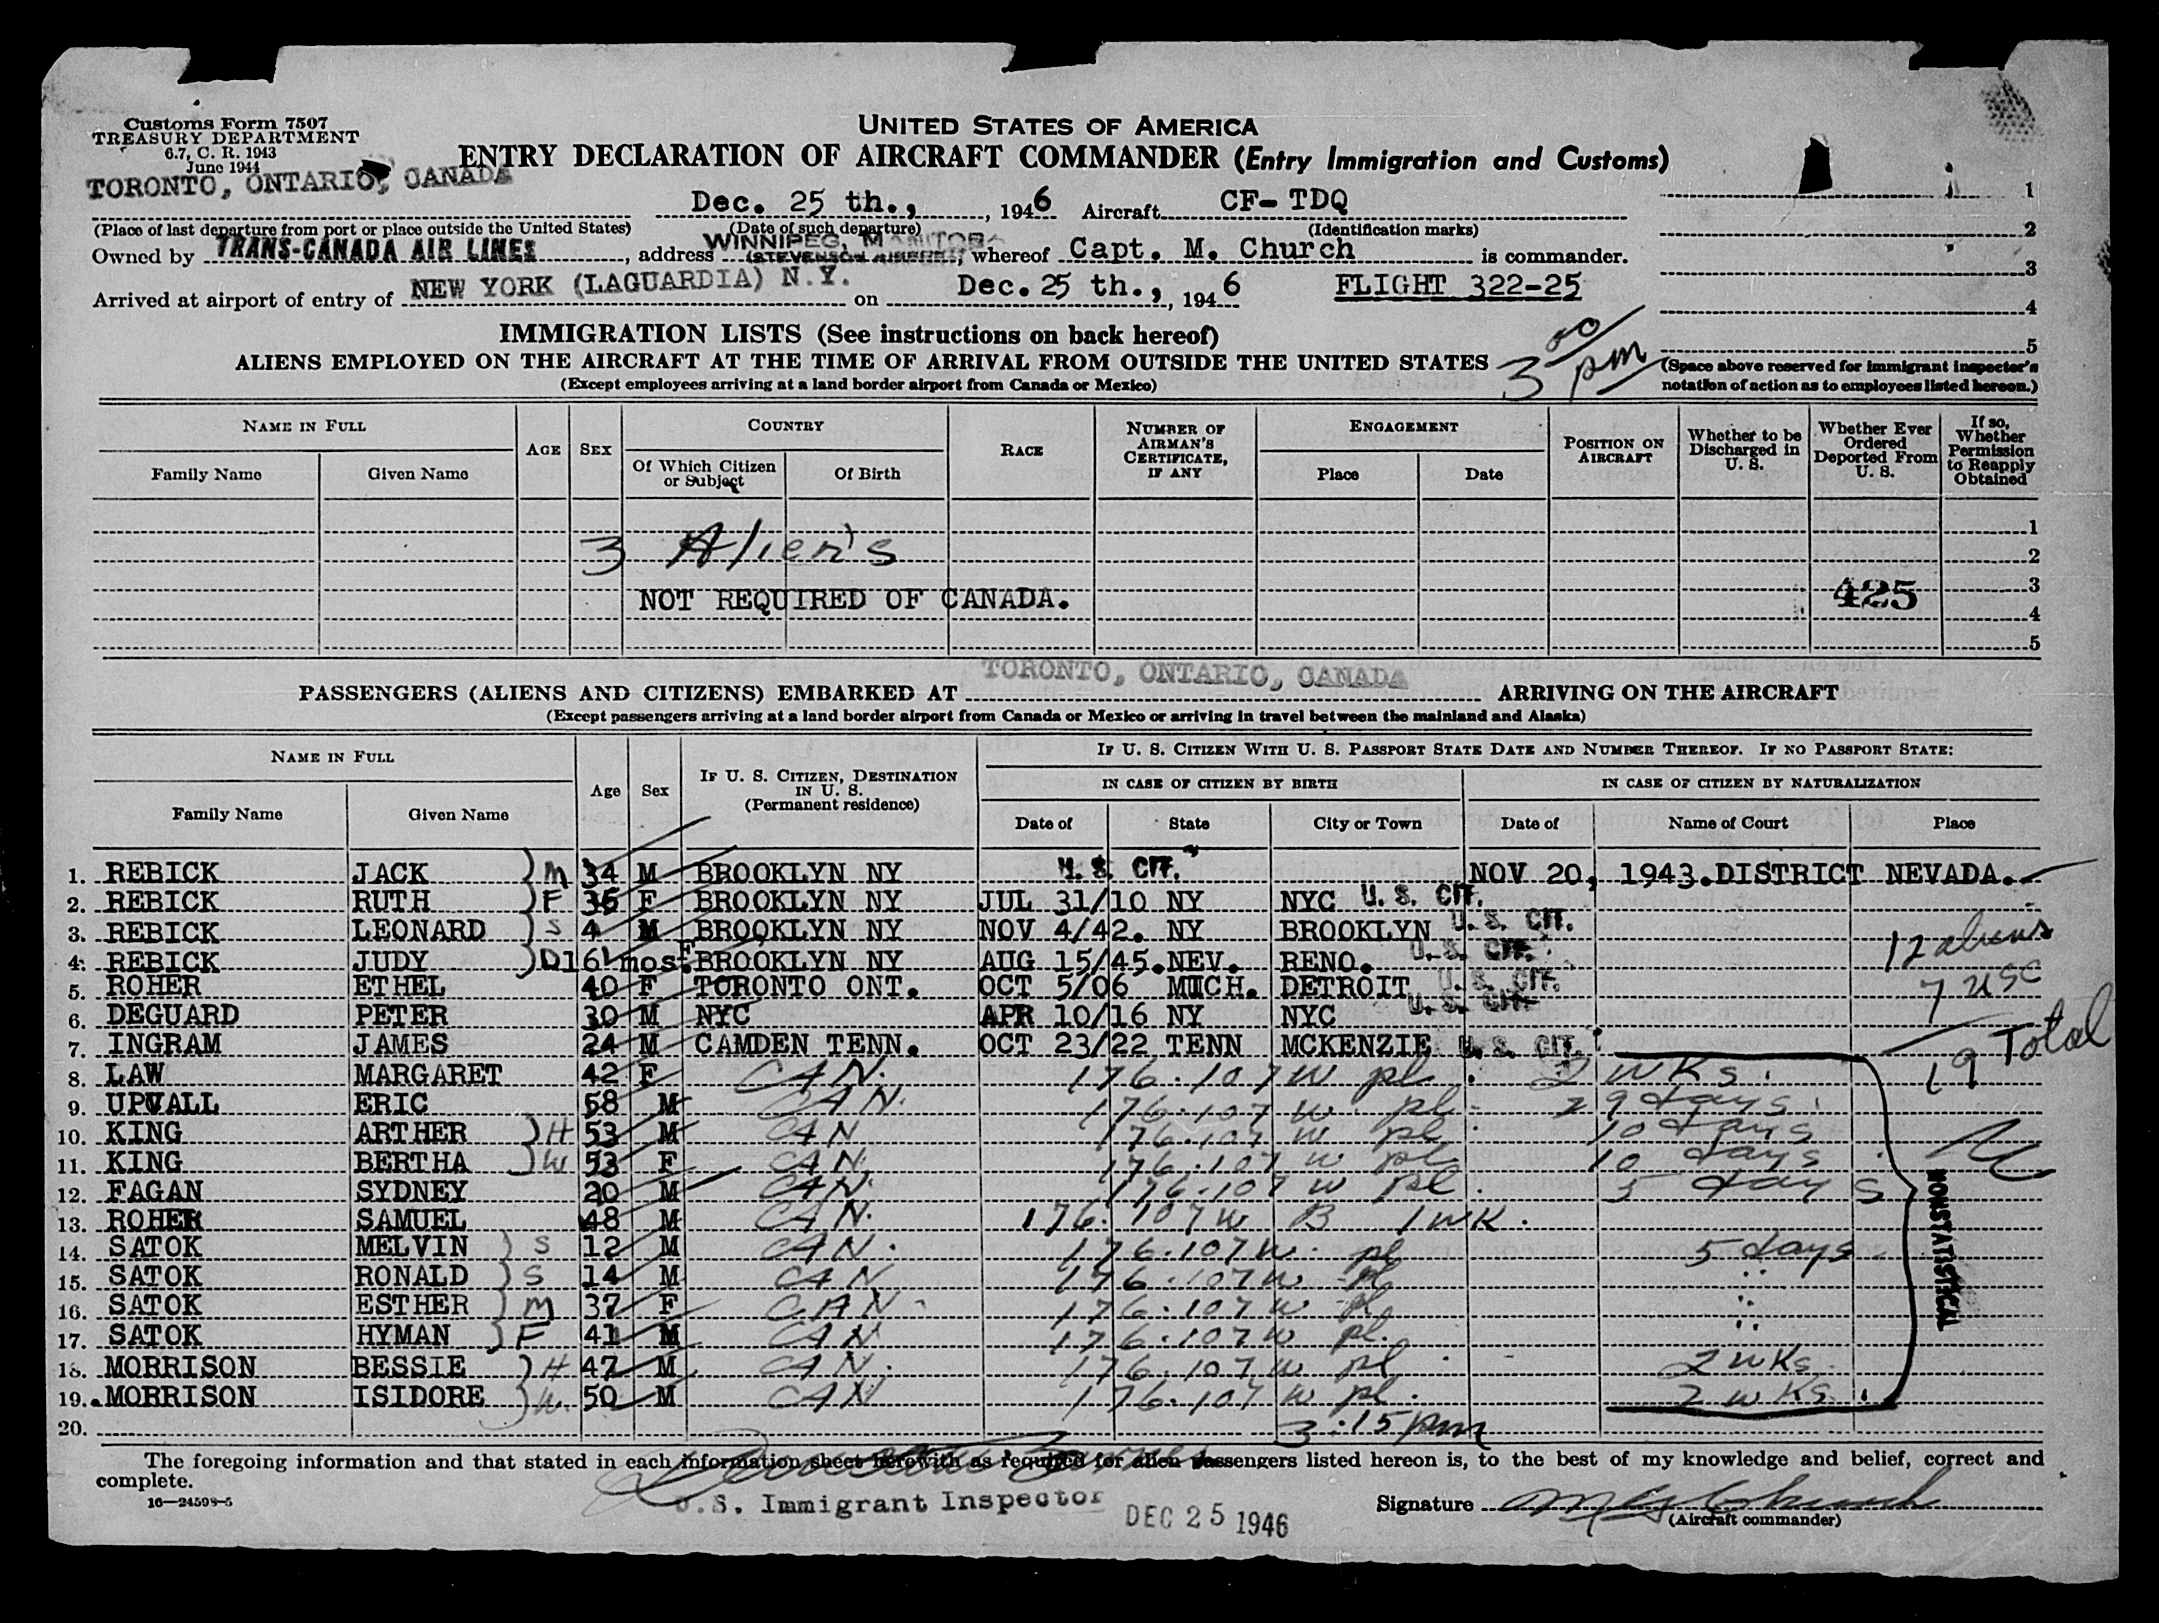 Customs Form 7507
TREASURY DEPARTMENT
6.7, C. R. 1943
June 1944
UNITED STATES OF AMERICA
ENTRY DECLARATION OF AIRCRAFT COMMANDER (Entry Immigration and Customs)
TORONTO, ONTARIO, CANADA Dec. 25 th., , 1946 Aircraft CF-TDQ 1
(Place of last departure from port or place outside the United States) (Date of such departure) (Identification marks) 2
Owned by TRANS-CANADA AIR LINES, address WINNIPEG, MANITOBA (STEVENSON ), whereof Capt. M. Church is commander. 3
Arrived at airport of entry of NEW YORK (LAGUARDIA) N.Y. on Dec. 25 th., , 1946 FLIGHT 322-25 4
IMMIGRATION LISTS (See instructions on back hereof) 5
ALIENS EMPLOYED ON THE AIRCRAFT AT THE TIME OF ARRIVAL FROM OUTSIDE THE UNITED STATES 3 00 pm (Space above reserved for immigrant inspector's
(Except employees arriving at a land border airport from Canada or Mexico) notation of action as to employees listed hereon.)
NAME IN FULL AGE SEX COUNTRY RACE NUMBER OF AIRMAN'S CERTIFICATE, IF ANY ENGAGEMENT POSITION ON AIRCRAFT Whether to be Discharged in U. S. Whether Ever Ordered Deported From U. S. If so, Whether Permission to Reapply Obtained
Family Name Given Name Of Which Citizen or Subject Of Birth Place Date
1
3 Alien's 2
NOT REQUIRED OF CANADA. 425 3
4
5
PASSENGERS (ALIENS AND CITIZENS) EMBARKED AT TORONTO, ONTARIO, CANADA ARRIVING ON THE AIRCRAFT
(Except passengers arriving at a land border airport from Canada or Mexico or arriving in travel between the mainland and Alaska)
NAME IN FULL Age Sex IF U. S. CITIZEN, DESTINATION IN U. S. (Permanent residence) IF U. S. CITIZEN WITH U. S. PASSPORT STATE DATE AND NUMBER THEREOF. IF NO PASSPORT STATE:
IN CASE OF CITIZEN BY BIRTH IN CASE OF CITIZEN BY NATURALIZATION
Family Name Given Name Date of State City or Town Date of Name of Court Place
1. REBICK JACK M 34 M BROOKLYN NY U. S. CIT. NOV 20, 1943. DISTRICT NEVADA.
2. REBICK RUTH F 36 F BROOKLYN NY JUL 31/10 NY NYC U. S. CIT.
3. REBICK LEONARD S 4 M BROOKLYN NY NOV 4/42. NY BROOKLYN U. S. CIT.
4. REBICK JUDY D 16 mos. F BROOKLYN NY AUG 15/45. NEV. RENO. U. S. CIT. 12 aliens
5. ROHER ETHEL 40 F TORONTO ONT. OCT 5/06 MICH. DETROIT U. S. CIT. 7 USC
6. DEGUARD PETER 30 M NYC APR 10/16 NY NYC U. S. CIT.
7. INGRAM JAMES 24 M CAMDEN TENN. OCT 23/22 TENN MCKENZIE U. S. CIT. 19 Total
8. LAW MARGARET 42 F CAN. 176.107 W pl. 2 wks.
9. UPVALL ERIC 58 M CAN. 176.107 W pl. 29 days.
10. KING ARTHER H 53 M CAN 176.107 W pl. 10 days
11. KING BERTHA W 53 F CAN. 176.107 W pl 10 days
12. FAGAN SYDNEY 20 M CAN. 176.107 W pl. 5 days
13. ROHER SAMUEL 48 M CAN. 176.107 W B 1 wk.
14. SATOK MELVIN S 12 M CAN. 176.107 W. pl 5 days
15. SATOK RONALD S 14 M CAN 176.107 W pl "
16. SATOK ESTHER M 37 F CAN 176.107 W pl "
17. SATOK HYMAN F 41 M CAN 176.107 W pl. "
18. MORRISON BESSIE H 47 M CAN. 176.107 W pl 2 wks.
19. MORRISON ISIDORE W. 50 M CAN 176.107 W pl. 2 wks.
NONSTATISTICAL
20. 3:15 pm
The foregoing information and that stated in each information sheet herewith as required for alien passengers listed hereon is, to the best of my knowledge and belief, correct and
complete.
16—24598-5
U.S. Immigrant Inspector DEC 25 1946 Signature M Church
(Aircraft commander)